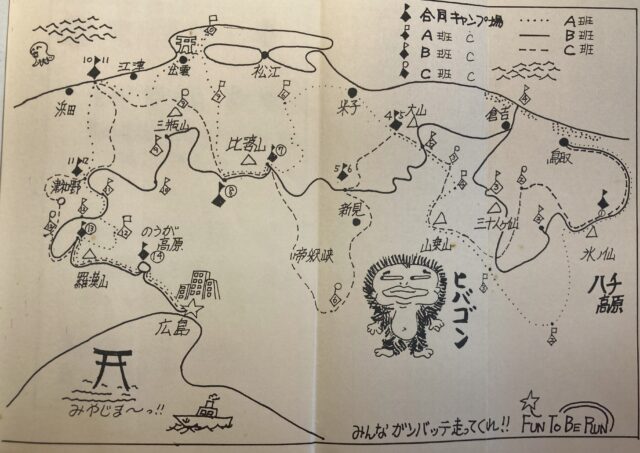 合同キャンプ場
A班 C
B班 C
C班 C
A班
B班
C班
10 11
江津
出雲
松江
浜田
米子
大山
4 5
倉吉
鳥取
三瓶山
比婆山
7
8
11 12
津和野
5 6
新見
帝釈峡
山乗山
氷ノ山
ハチ高原
13
のうが高原
14
羅漢山
広島
ヒバゴン
みやじま〜っ!!
みんなガンバッテ走ってくれ!!
FUN TO BE RUN